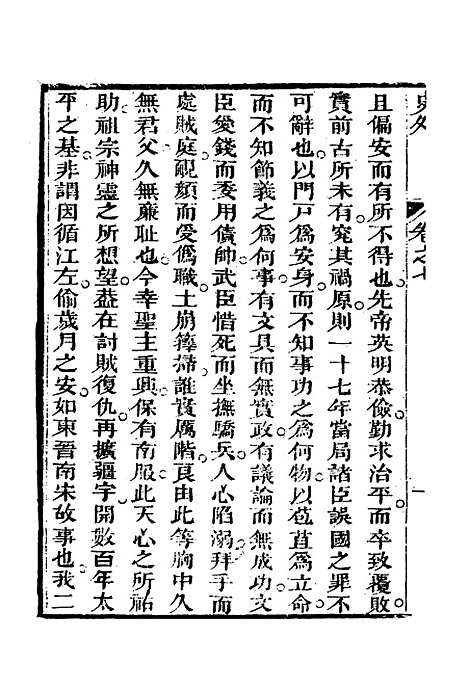 史外 卷之七 一
且偏安而有所不得也先帝英明恭儉勤求治平而卒致覆敗
實前古所未有究其禍原則一十七年當局諸臣誤國之罪不
可辭也以門戸為安身而不知事功之為何物以苞苴為立命
而不知節義之為何事有文具而無實政有議論而無成功文
臣愛錢而委用債帥武臣惜死而坐撫驕兵人心陷溺拜手而
處賊庭靦顏而受偽職土崩籜掃誰實厲階良由此等胸中久
無君父久無亷耻也今幸聖主重興保有南服此天心之所祐
助祖宗神靈之所想望葢在討賊復仇再擴疆宇開數百年太
平之基非謂因循江左偷歲月之安如東晉南宋故事也我二